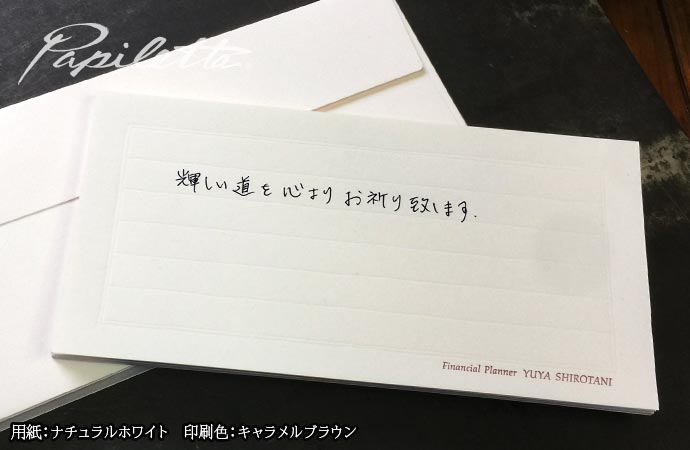 Papiletta
輝しい道を心よりお祈り致します.
Financial Planner YUYA SHIROTANI
用紙：ナチュラルホワイト 印刷色：キャラメルブラウン